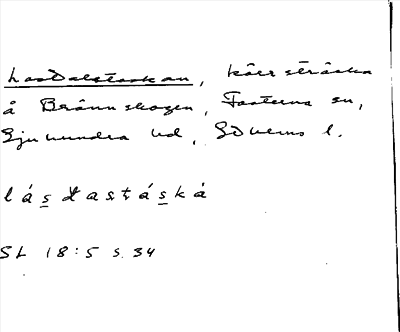 Lasdalstaskan, kärrsträcka
å Brännskogen, Fasterna sn,
Sjuhundra hd, Sthlms l.
l á s d a s t á s k á
SL 18:5 s. 34